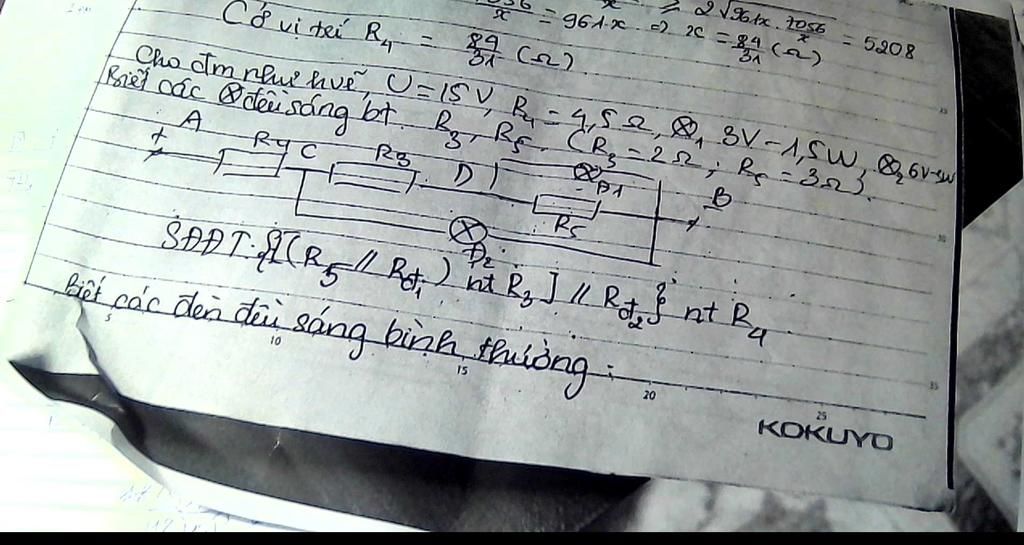 7056/x = 961.x => x = 84/31 (Ω) ≥ 2√961x.7056/x = 5208
Cở vị trí R4 = 84/31 (Ω)
Cho đm như hvẽ, U = 15V, R4 = 4,5Ω, ⊗1 3V - 1,5W, ⊗2 6V-3W
Biết các ⊗ đều sáng bt. R3, R5. (R3 = 2Ω; R5 = 3Ω)
+ A R4 C R3 D Đ1 B -
R5
Đ2
SĐĐT: {[(R5 // Rđ1) nt R3] // Rđ2} nt R4
Biết các đèn đều sáng bình thường.
5 10 15 20 25
30
35
KOKUYO